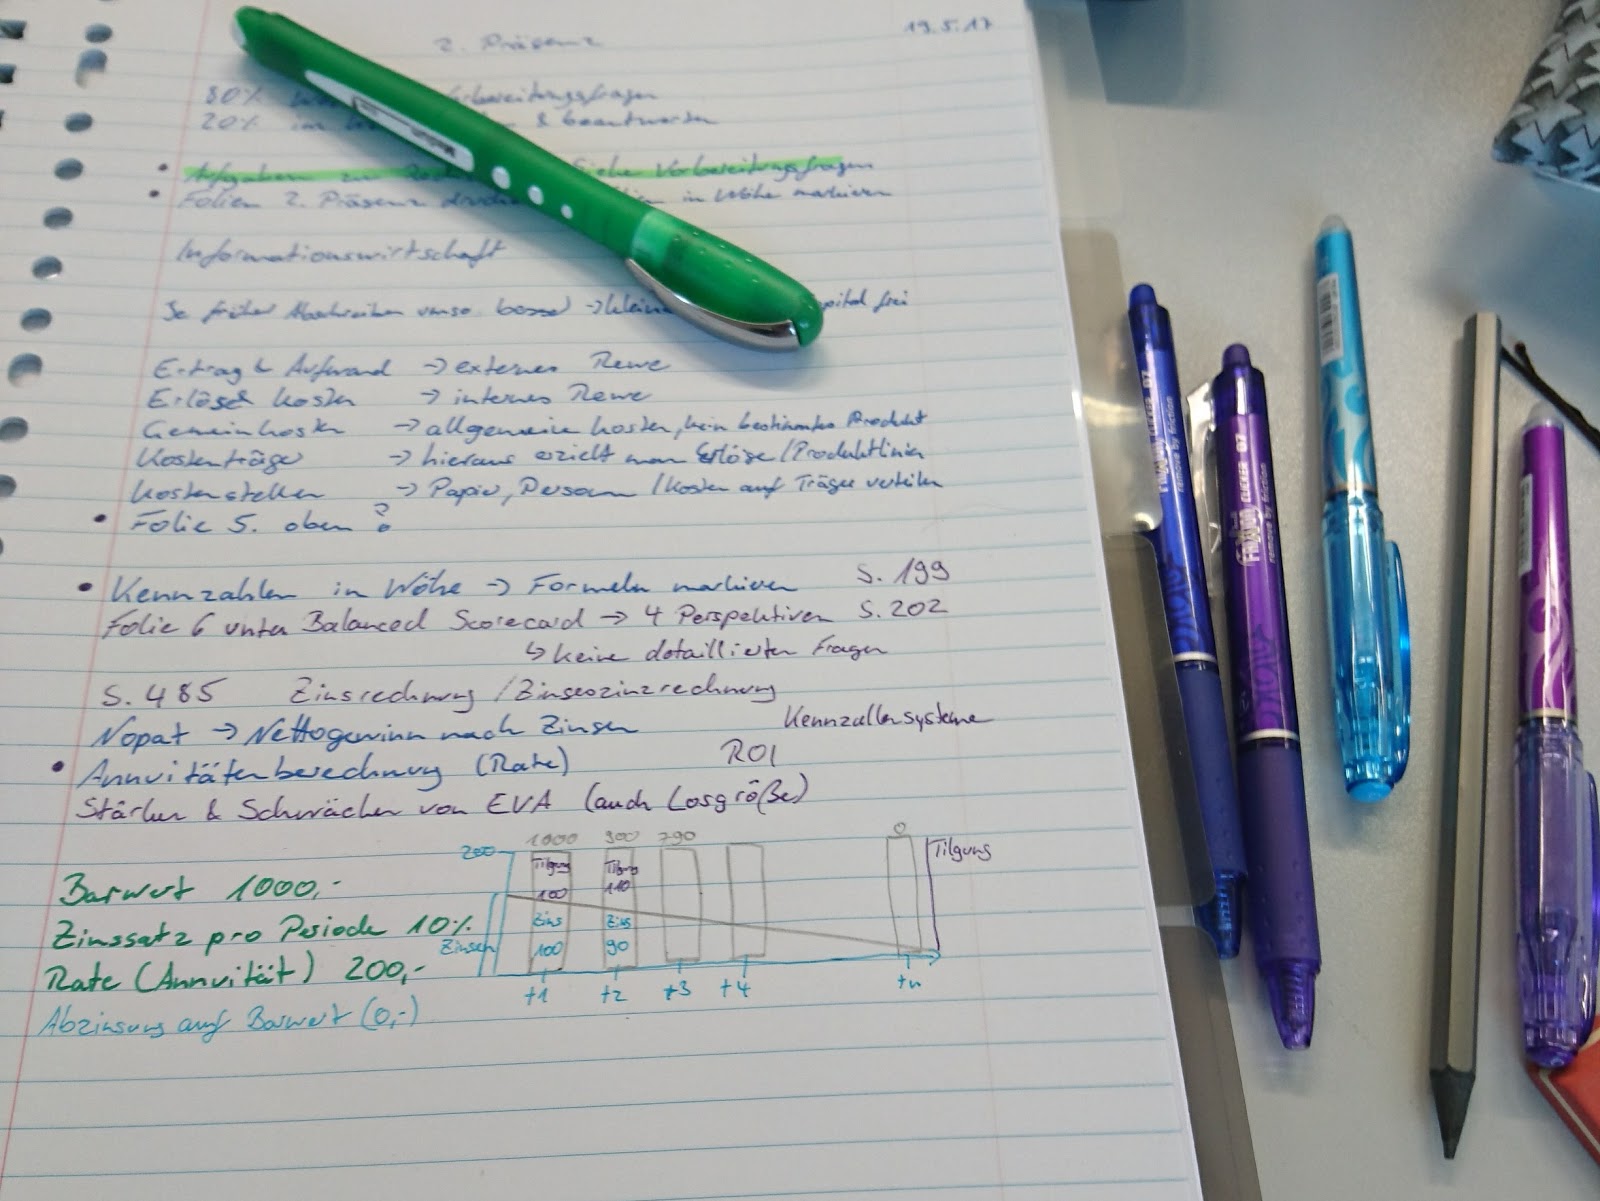 19.5.17
2. Präsenz
80% Vorbereitungsfragen
20% im & beantworten
Aufgaben zu siehe Vorbereitungsfragen
Folien 2. Präsenz in Wöhe markieren
Informationswirtschaft
Je früher Abschreiben umso besser → frei
Ertrag & Aufwand → externes Rewe
Erlöse & Kosten → internes Rewe
Gemeinkosten → allgemeine Kosten, kein bestimmtes Produkt
Kostenträger → hieraus erzielt man Erlöse/Produktlinien
Kostenstellen → Papier, Person / Kosten auf Träger verteilen
Folie 5. oben ?
Kennzahlen in Wöhe → Formeln markieren S. 199
Folie 6 unten Balanced Scorecard → 4 Perspektiven S. 202
↳ keine detaillierten Fragen
S. 485 Zinsrechnung / Zinseszinzrechnung
Nopat → Nettogewinn nach Zinsen Kennzahlensysteme
Annuitätenberechnung (Rate) ROI
Stärken & Schwächen von EVA (auch Losgröße)
1000 900 790 0
200 Tilgung Tilgung Tilgung
100 110
Barwert 1000,-
Zins Zins
Zinssatz pro Periode 10%
Zinsen 100 90
Rate (Annuität) 200,-
t1 t2 t3 t4 tn
Abzinsung auf Barwert (0,-)
FRIXION CLICKER 07
remove by friction
FRIXION CLICKER 07
remove by friction